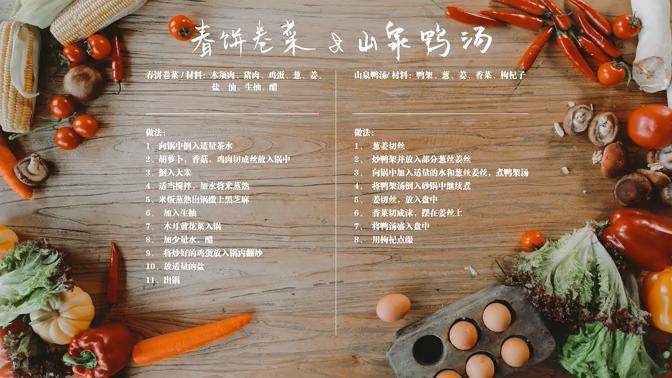 春饼卷菜 & 山泉鸭汤
春饼卷菜/材料：木须肉、猪肉、鸡蛋、葱、姜、
盐、油、生抽、醋
做法：
1、向锅中倒入适量茶水
2、胡萝卜，香菇，鸡肉切成丝放入锅中
3、倒入大米
4、适当搅拌，加水将米蒸熟
5、米饭蒸熟出锅撒上黑芝麻
6、 加入生抽
7、 木耳黄花菜入锅
8、 加少量水，醋
9、 将炒好的鸡蛋放入锅内翻炒
10、放适量的盐
11、出锅
山泉鸭汤/材料：鸭架、葱、姜、香菜、枸杞子
做法：
1、 葱姜切丝
2、 炒鸭架并放入部分葱丝姜丝
3、 向锅中加入适量的水和葱丝姜丝，煮鸭架汤
4、 将鸭架汤倒入砂锅中继续煮
5、 姜切丝，放入盘中
6、 香菜切成沫，摆在姜丝上
7、 将鸭汤盛入盘中
8、 用枸杞点缀